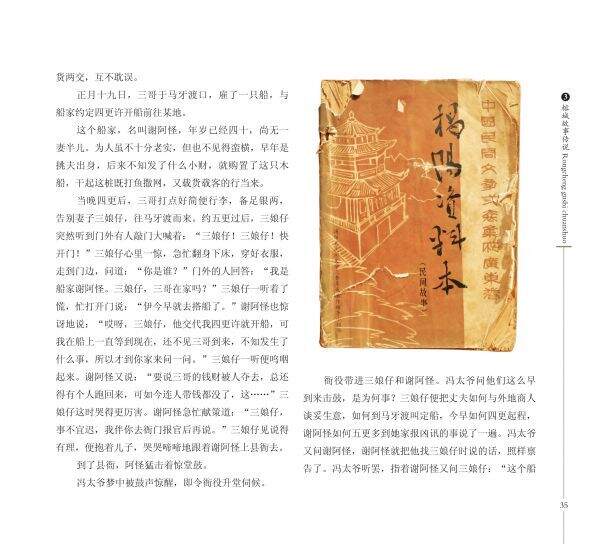 货两交，互不耽误。
正月十九日，三哥于马牙渡口，雇了一只船，与
船家约定四更许开船前往某地。
这个船家，名叫谢阿怪，年岁已经四十，尚无一
妻半儿。为人虽不十分老实，但也不见得蛮横，早年是
挑夫出身，后来不知发了什么小财，就购置了这只木
船，干起这桩既打鱼撒网，又载货载客的行当来。
当晚四更后，三哥打点好简便行李，备足银两，
告别妻子三娘仔，往马牙渡而来。约五更过后，三娘仔
突然听到门外有人敲门大喊着：“三娘仔！三娘仔！快
开门！”三娘仔心里一惊，急忙翻身下床，穿好衣服，
走到门边，问道：“你是谁？”门外的人回答：“我是
船家谢阿怪。三娘仔，三哥在家吗？”三娘仔一听着了
慌，忙打开门说：“伊今早就去搭船了。”谢阿怪也惊
讶地说：“哎呀，三娘仔，他交代我四更许就开船，可
我在船上一直等到现在，还不见三哥到来，不知发生了
什么事，所以才到你家来问一问。”三娘仔一听便呜咽
起来。谢阿怪又说：“要说三哥的钱财被人夺去，总还
得有个人跑回来，可如今连人带钱都没了，这……”三
娘仔这时哭得更厉害。谢阿怪急忙献策道：“三娘仔，
事不宜迟，我伴你去衙门报官后再说。”三娘仔见说得
有理，便抱着儿子，哭哭啼啼地跟着谢阿怪上县衙去。
到了县衙，阿怪猛击着惊堂鼓。
冯太爷梦中被鼓声惊醒，即令衙役升堂伺候。
中国民间文学
广东卷
揭阳资料本
（民间故事）
衙役带进三娘仔和谢阿怪。冯太爷问他们这么早
到来击鼓，是为何事？三娘仔便把丈夫如何与外地商人
谈妥生意，如何到马牙渡叫定船，今早如何四更起程，
谢阿怪如何五更多到她家报凶讯的事说了一遍。冯太爷
又问谢阿怪，谢阿怪就把他找三娘仔时说的话，照样禀
告了。冯太爷听罢，指着谢阿怪又问三娘仔：“这个船
3
榕城故事传说 Rongcheng gushi chuanshuo
35